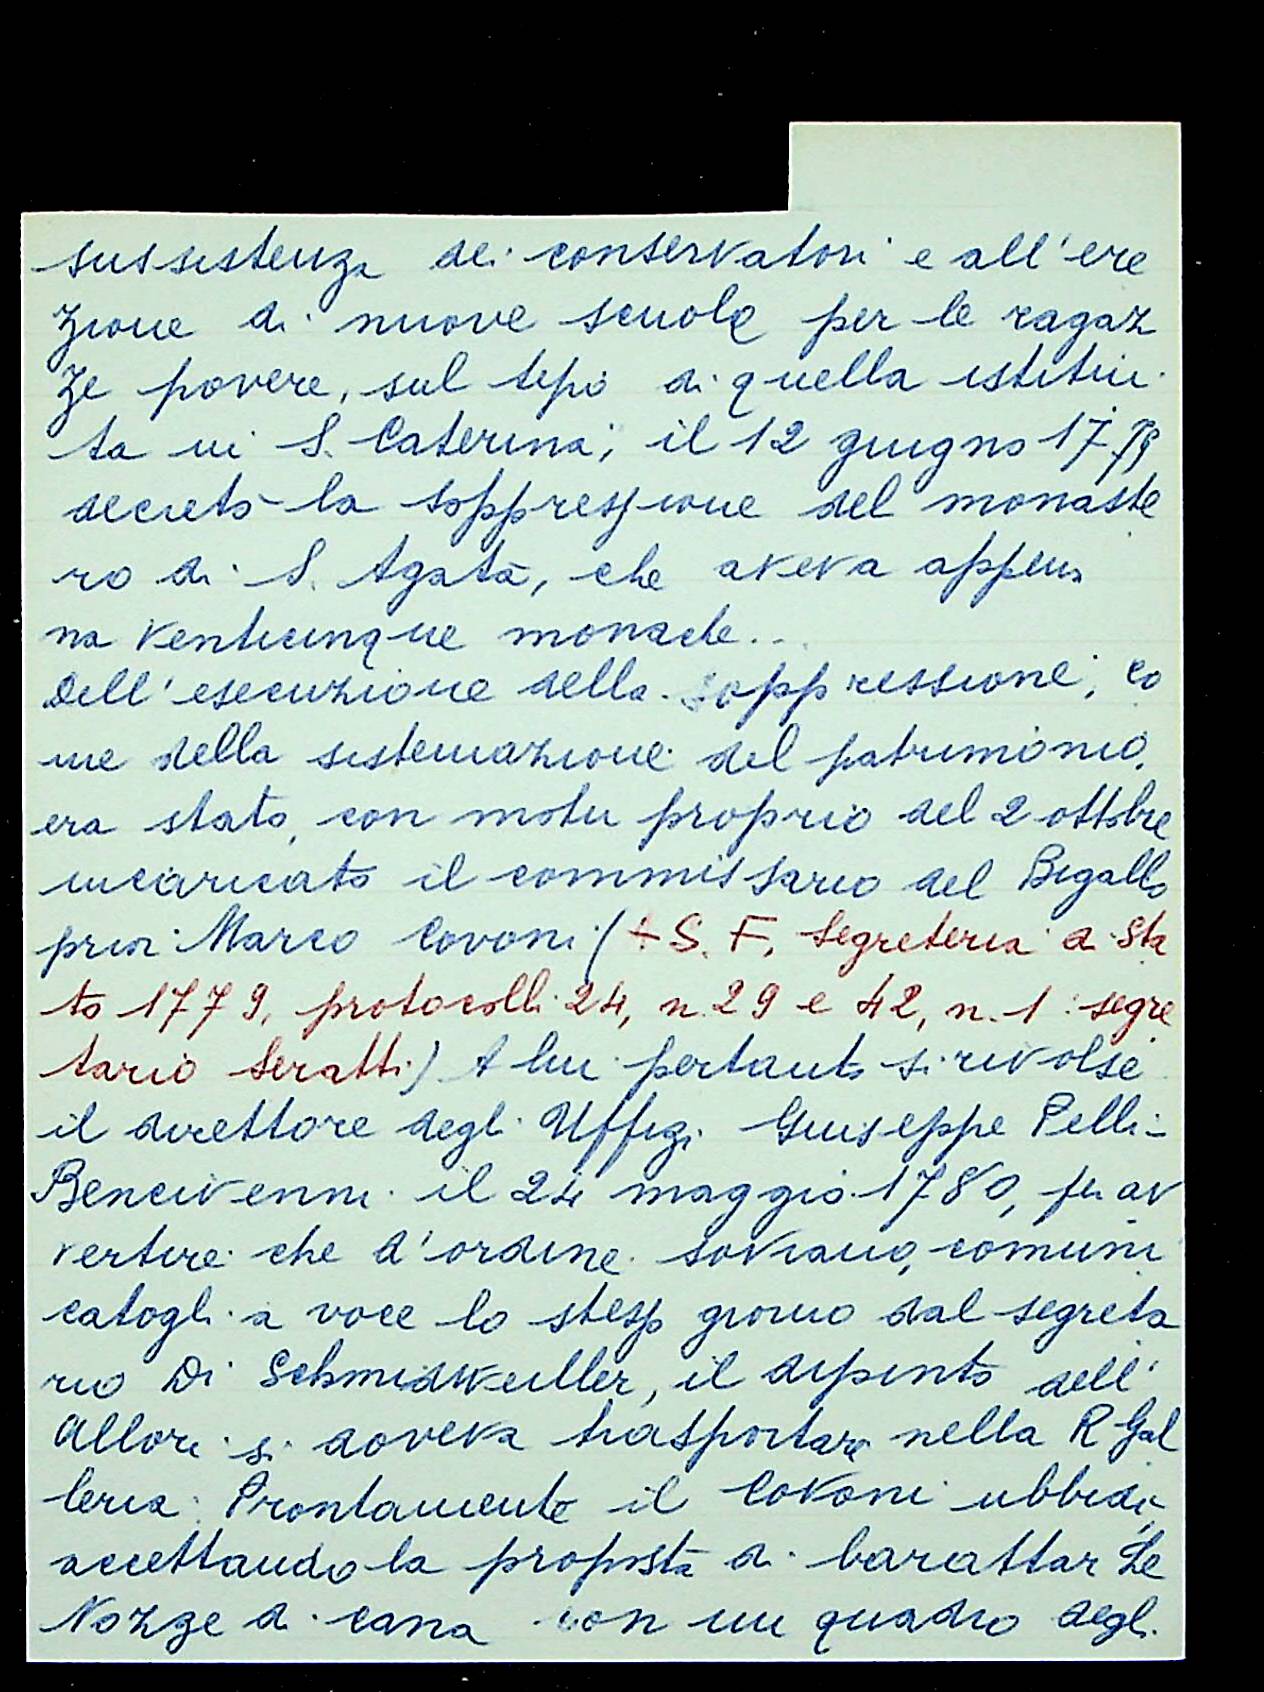 sussistenza dei conservatori e all'ere
zione di nuove scuole per le ragaz
ze povere, sul tipo di quella istitui
ta in S. Caterina; il 12 giugno 1779
decretò la soppressione del monaste
ro di S. Agata, che aveva appen
na venticinque monache...
Dell'esecuzione della soppressione, co
me della sistemazione del patrimonio,
era stato, con motu proprio del 2 ottobre
incaricato il commissario del Bigallo
prior Marco Covoni (A S. F, Segreteria di Sta
to 1779, protocolli 24, n. 29 e 42, n. 1 segre
tario Seratti) A lui pertanto si rivolse
il direttore degli Uffizi Giuseppe Pelli-
Bencivenni il 24 maggio 1780, per av
vertire che d'ordine sovrano, comuni
catogli a voce lo stesso giorno dal segreta
rio Di Schmidweiller, il dipinto dell'
Allori si doveva trasportare nella R Gal
leria. Prontamente il Covoni ubbidì,
accettando la proposta di barattar Le
Nozze di cana con un quadro degli